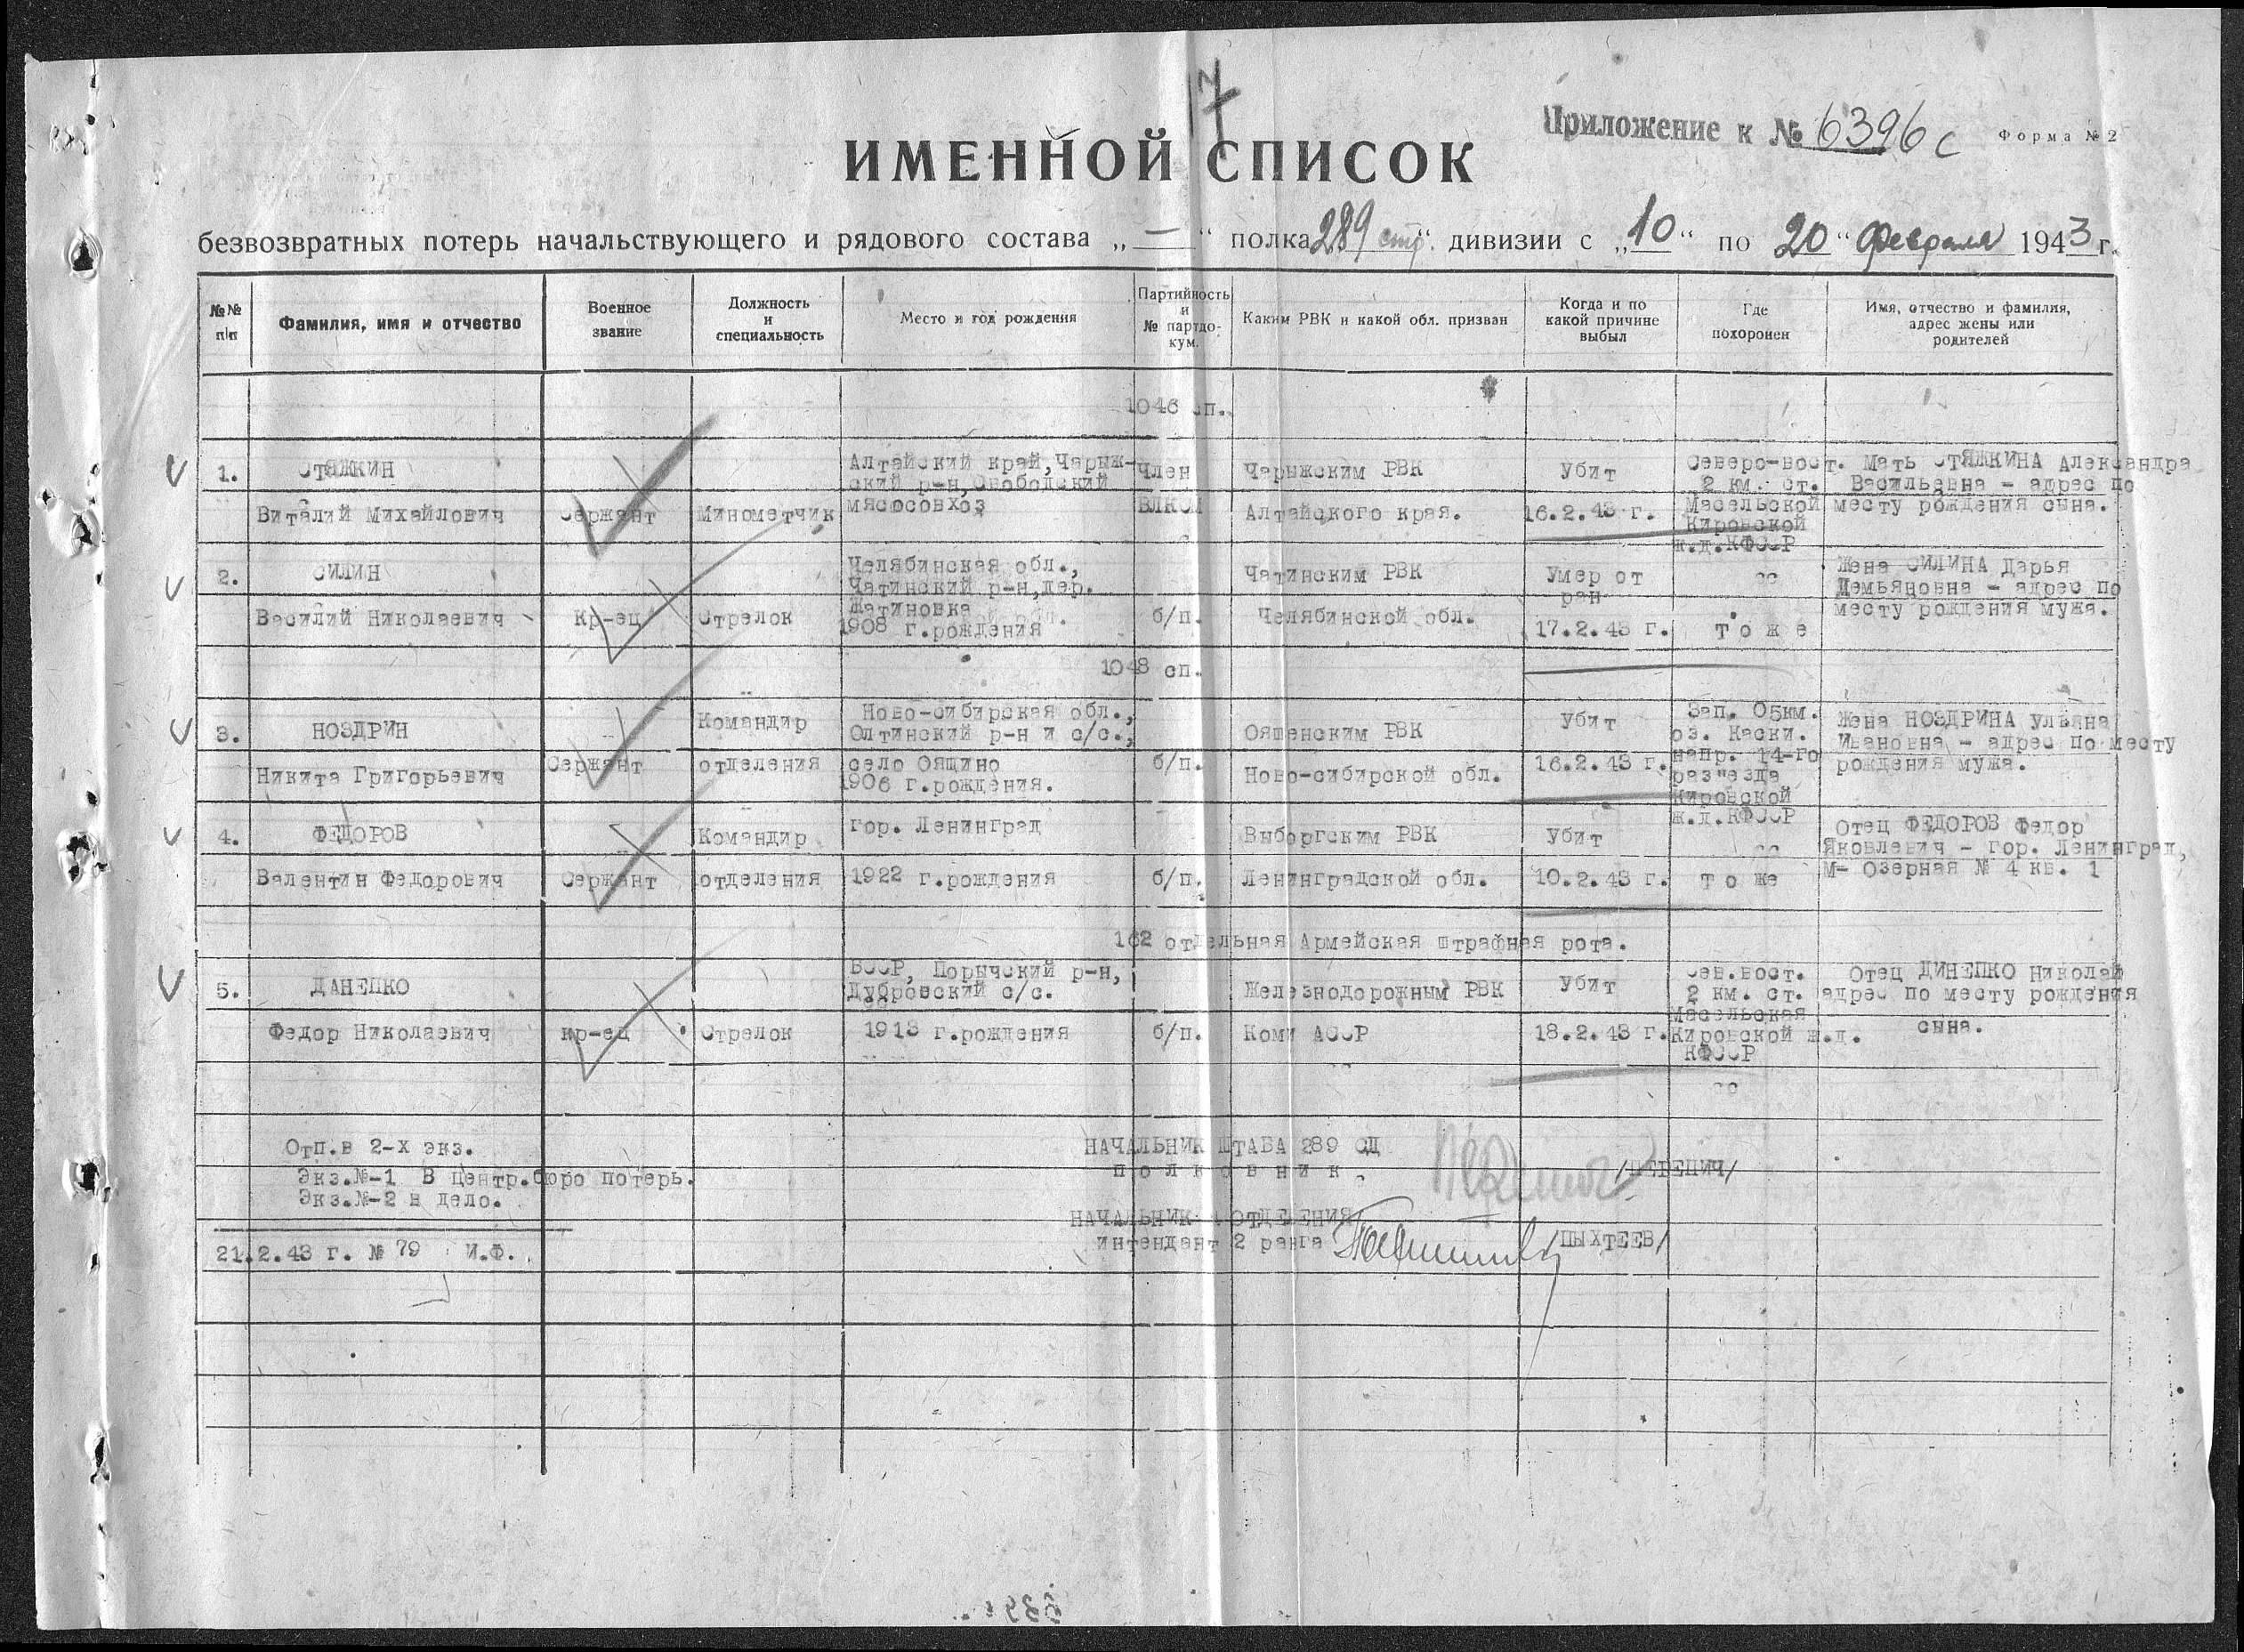 17
Приложение к № 6396с
Форма № 2
ИМЕННОЙ СПИСОК
безвозвратных потерь начальствующего и рядового состава „ — “ полка 289 стр. дивизии с „10“ по 20 “ февраля 1943 г.
№№ п/п
Фамилия, имя и отчество
Военное звание
Должность и специальность
Место и год рождения
Партийность и № партдокум.
Каким РВК и какой обл. призван
Когда и по какой причине выбыл
Где похоронен
Имя, отчество и фамилия, адрес жены или родителей
1046 сп.
1.
СТЯЖКИН
Виталий Михайлович
Сержант
Минометчик
Алтайский край, Чарыж-
ский р-н, Свободский
мясосовхоз
Член
ВЛКСМ
Чарыжским РВК
Алтайского края.
Убит
16.2.43 г.
Северо-вост.
2 км. ст.
Масельской
Кировской
ж.д.КФССР
Мать СТЯЖКИНА Александра
Васильевна - адрес по
месту рождения сына.
2.
СИЛИН
Василий Николаевич
Кр-ец
Стрелок
Челябинская обл.,
Чатинский р-н, дер.
Шатиновка
1908 г.рождения
б/п.
Чатинским РВК
Челябинской обл.
Умер от
ран
17.2.43 г.
т о ж е
Жена СИЛИНА Дарья
Демьяновна - адрес по
месту рождения мужа.
1048 сп.
3.
НОЗДРИН
Никита Григорьевич
Сержант
Командир
отделения
Ново-сибирская обл.,
Олтинский р-н и с/с.,
село Оящино
1906 г.рождения.
б/п.
Ояшенским РВК
Ново-сибирской обл.
Убит
16.2.43 г.
Зап. 05км.
оз. Каски.
напр. 14-го
раз"езда
Кировской
ж.д.КФССР
Жена НОЗДРИНА Ульяна
Ивановна - адрес по месту
рождения мужа.
4.
ФЕДОРОВ
Валентин Федорович
Сержант
Командир
отделения
гор. Ленинград
1922 г.рождения
б/п.
Выборгским РВК
Ленинградской обл.
Убит
10.2.43 г.
т о же
Отец ФЕДОРОВ Федор
Яковлевич - гор. Ленинград,
М- Озерная № 4 кв. 1
162 отдельная Армейская штрафная рота.
5.
ДАНЕПКО
Федор Николаевич
кр-ец
Стрелок
БССР, Порычский р-н,
Дубровский с/с.
1913 г.рождения
б/п.
Железнодорожным РВК
Коми АССР
Убит
18.2.43 г.
Сев.вост.
2 км. ст.
Масельская
Кировской ж.д.
КФССР
Отец ДИНЕПКО Николай
адрес по месту рождения
сына.
Отп.в 2-х экз.
Экз.№-1 В Центр.бюро потерь.
Экз.№-2 в дело.
21.2.43 г. № 79 И.Ф.
НАЧАЛЬНИК ШТАБА 289 СД
п о л к о в н и к.
НАЧАЛЬНИК ОТДЕЛЕНИЯ
интендант 2 ранга
/ПЫХТЕЕВ/